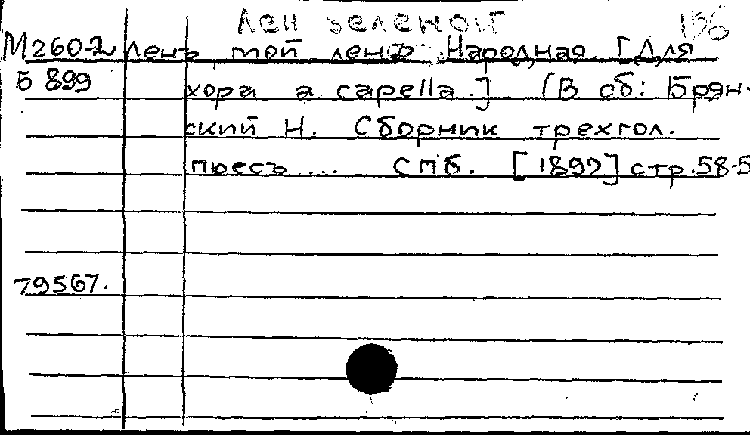 Лен зеленой
136
М260-2 Ленъ мой ленъ. Народная. [Для
Б 899 хора a capella.] (В сб: Брян-
ский Н. Сборник трехгол.
пьесъ.... СПб. [1897] стр. 58-5
79567.